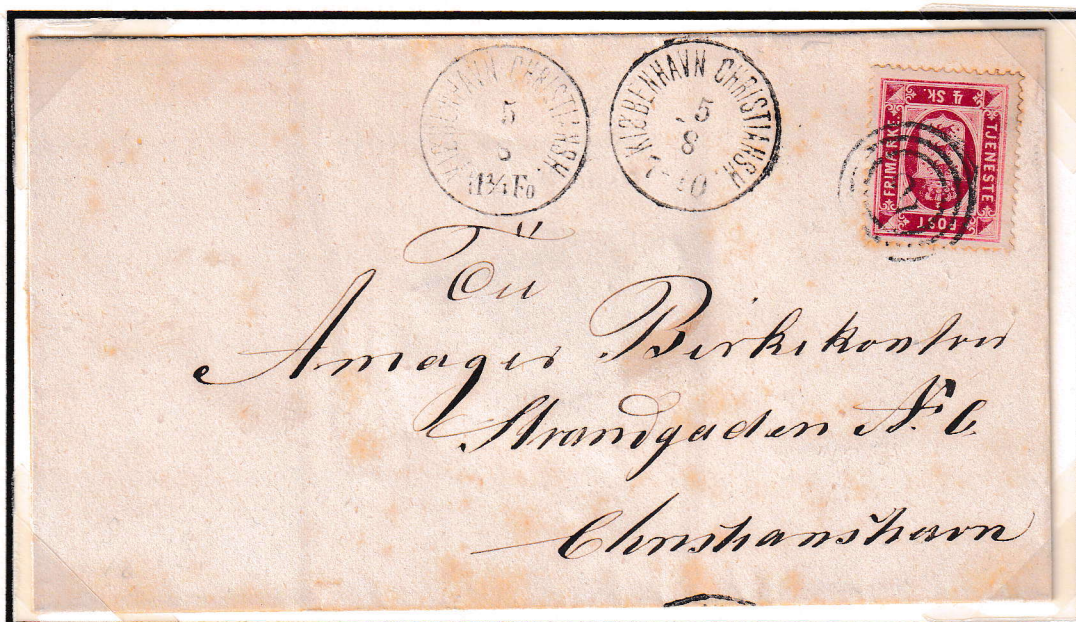 KIØBENHAVN CHRISTIANSH.
5
8
11¾ Fo
KIØBENHAVN CHRISTIANSH.
5
8
TJENESTE
POST
FRIMÆRKE
4 SK.
Til
Amager Birkekontor
Strandgaden
Christianshavn